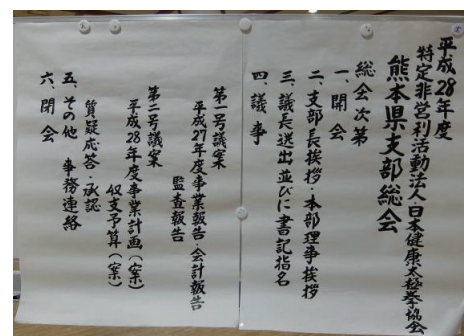 平成28年度
特定非営利活動法人・日本健康太極拳協会
熊本県支部総会
総会次第
一、開会
二、支部長挨拶・本部理事挨拶
三、議長選出 並びに書記指名
四、議事
第一号議案
平成27年度事業報告・会計報告
監査報告
第二号議案
平成28年度事業計画(案)
収支予算(案)
質疑応答・承認
五、その他 事務連絡
六、閉会